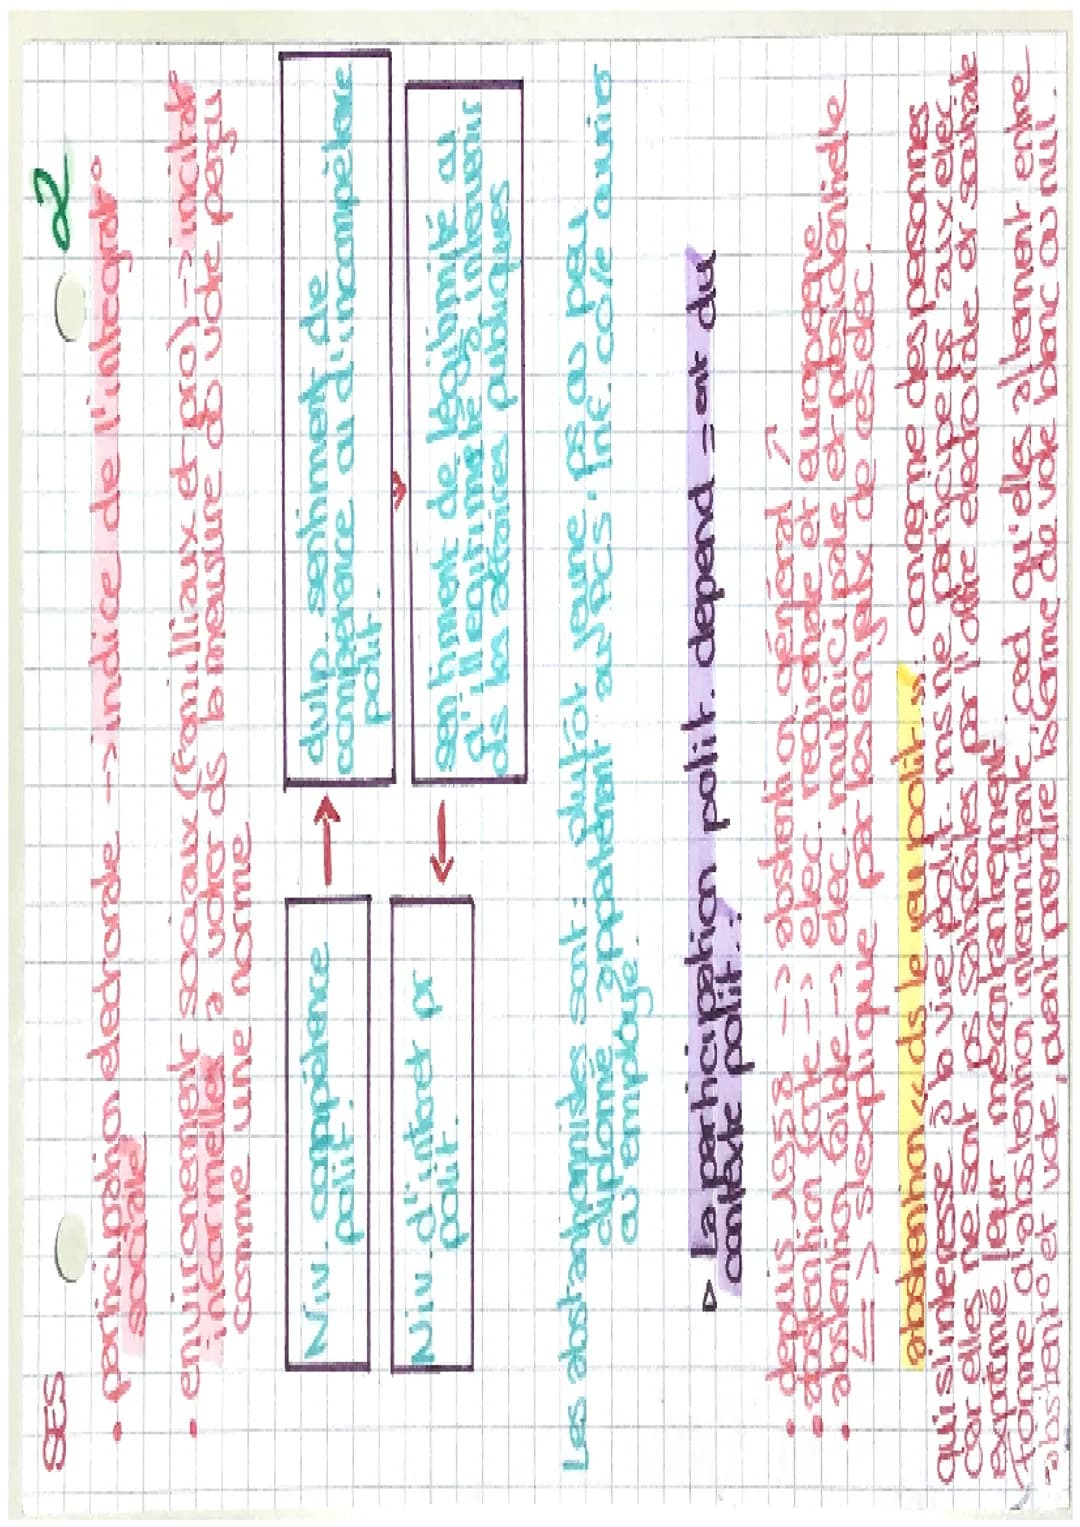 SES
2
• participato electorale -> indice de l'intégrato
sociale
• environnement sociaux (familliaux et pro) -> incitat°
informelle à voter ds la mesure où vote perçu
comme une norme
Niv. compétence
polit.
dvlp sentiment de
compétence ou d'incompétence
polit.
Niv. d'intérêt pr
polit.
sentiment de légitimité ou
d'illégitimité à intervenir
ds les affaires publiques
Les abstentionnistes sont : plutôt jeune, ps ou peu
diplômé, appartenant aux PCS. inf. cole ouvrier
ou employé.
▷ La participation polit. depend = ent du
contexte polit. :
• depuis 1958 -> abstent° en général ↗
• abstention forte -> elec. régionale et européenne
• abstention faible -> elec. municipale et présidentielle
=> s'explique par les enjeux de ces elec.
abstention « ds le jeu polit. » : concerne des personnes
qui s'interesse à la vie polit. ms ne participe ps aux elec
car elles ne sont ps satisfaites par l'offre electorale et souhaite
exprimé leur mécontentement
forme d'abstention intermittente, cad qu'elles alternent entre
abstent° et vote, peut prendre la forme du vote blanc ou nul.